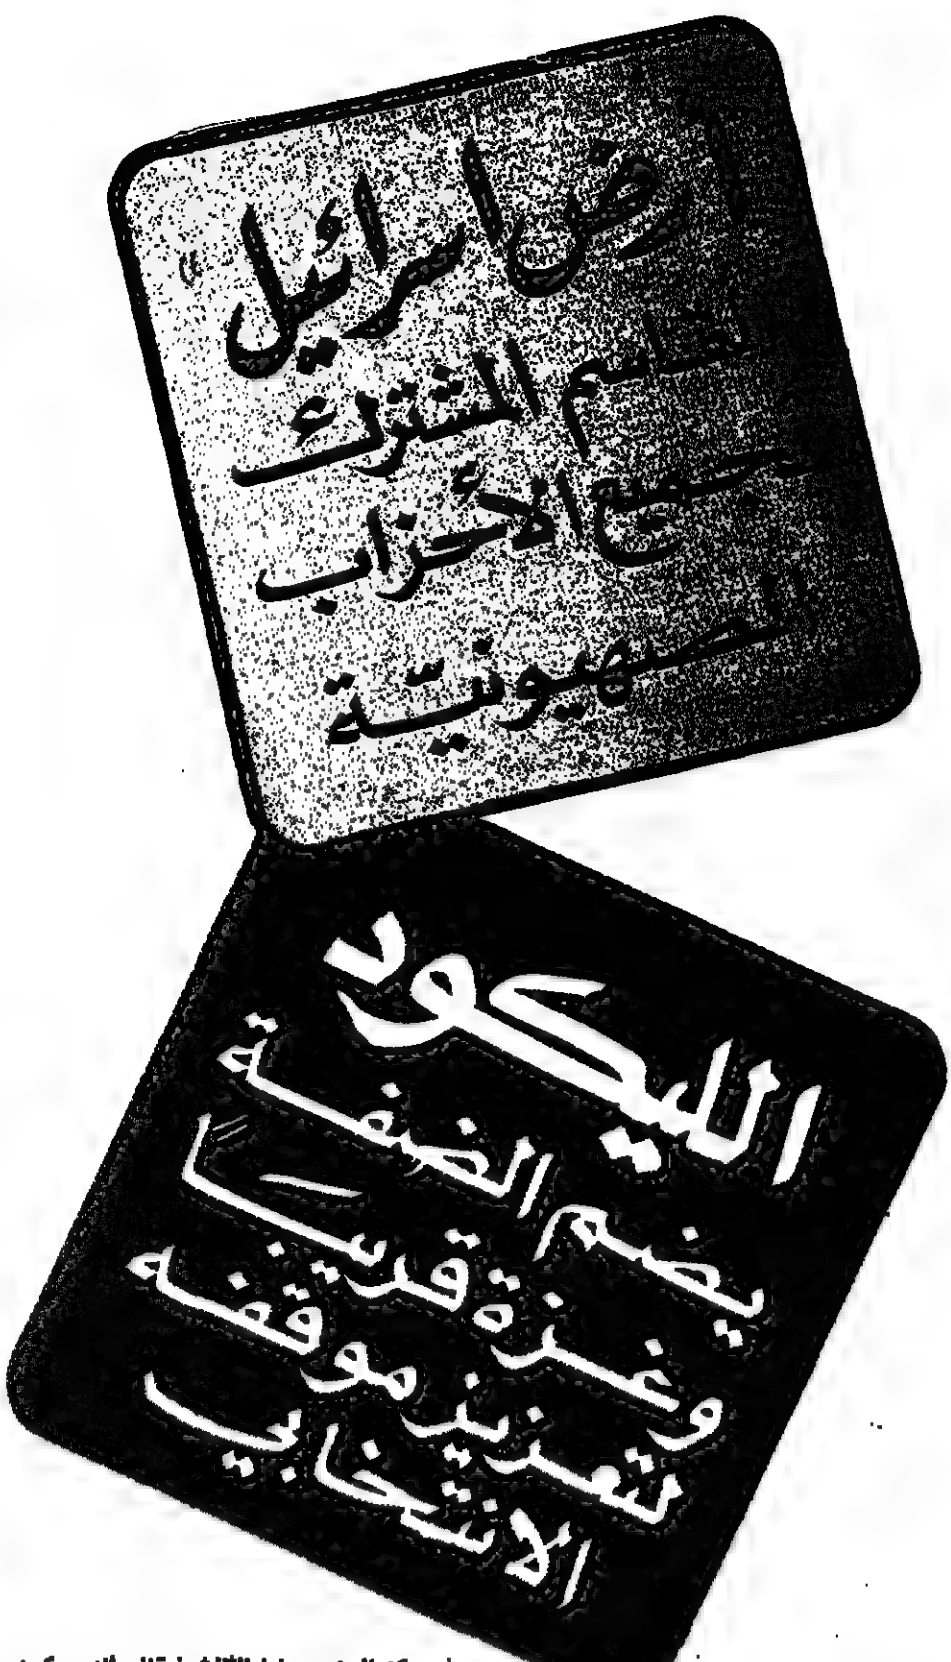 أرض اسرائيل"
القاسم المشترك
لجميع الأحزاب
الصهيونيّة
الليكود
يضم الضفة
وغزة قريبًا
لتعزيز موقفه
الانتخابي